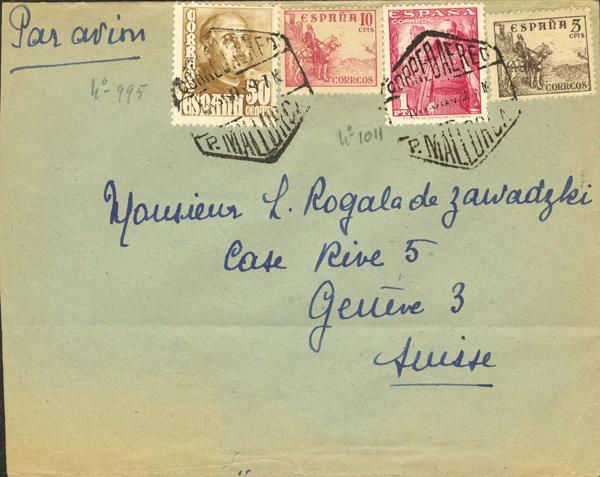 Par avion
Nº 995
CORREOS
ESPAÑA 50
CENTS
ESPAÑA 10
CTS
CORREOS
ESPAÑA
CORREOS
1 PTA
ESPAÑA 5
CTS
CORREOS
CORREO AEREO
P. MALLORCA
CORREO AEREO
P. MALLORCA
Nº 1011
Monsieur L. Rogala de Zawadzki
Case Rive 5
Genève 3
Suisse